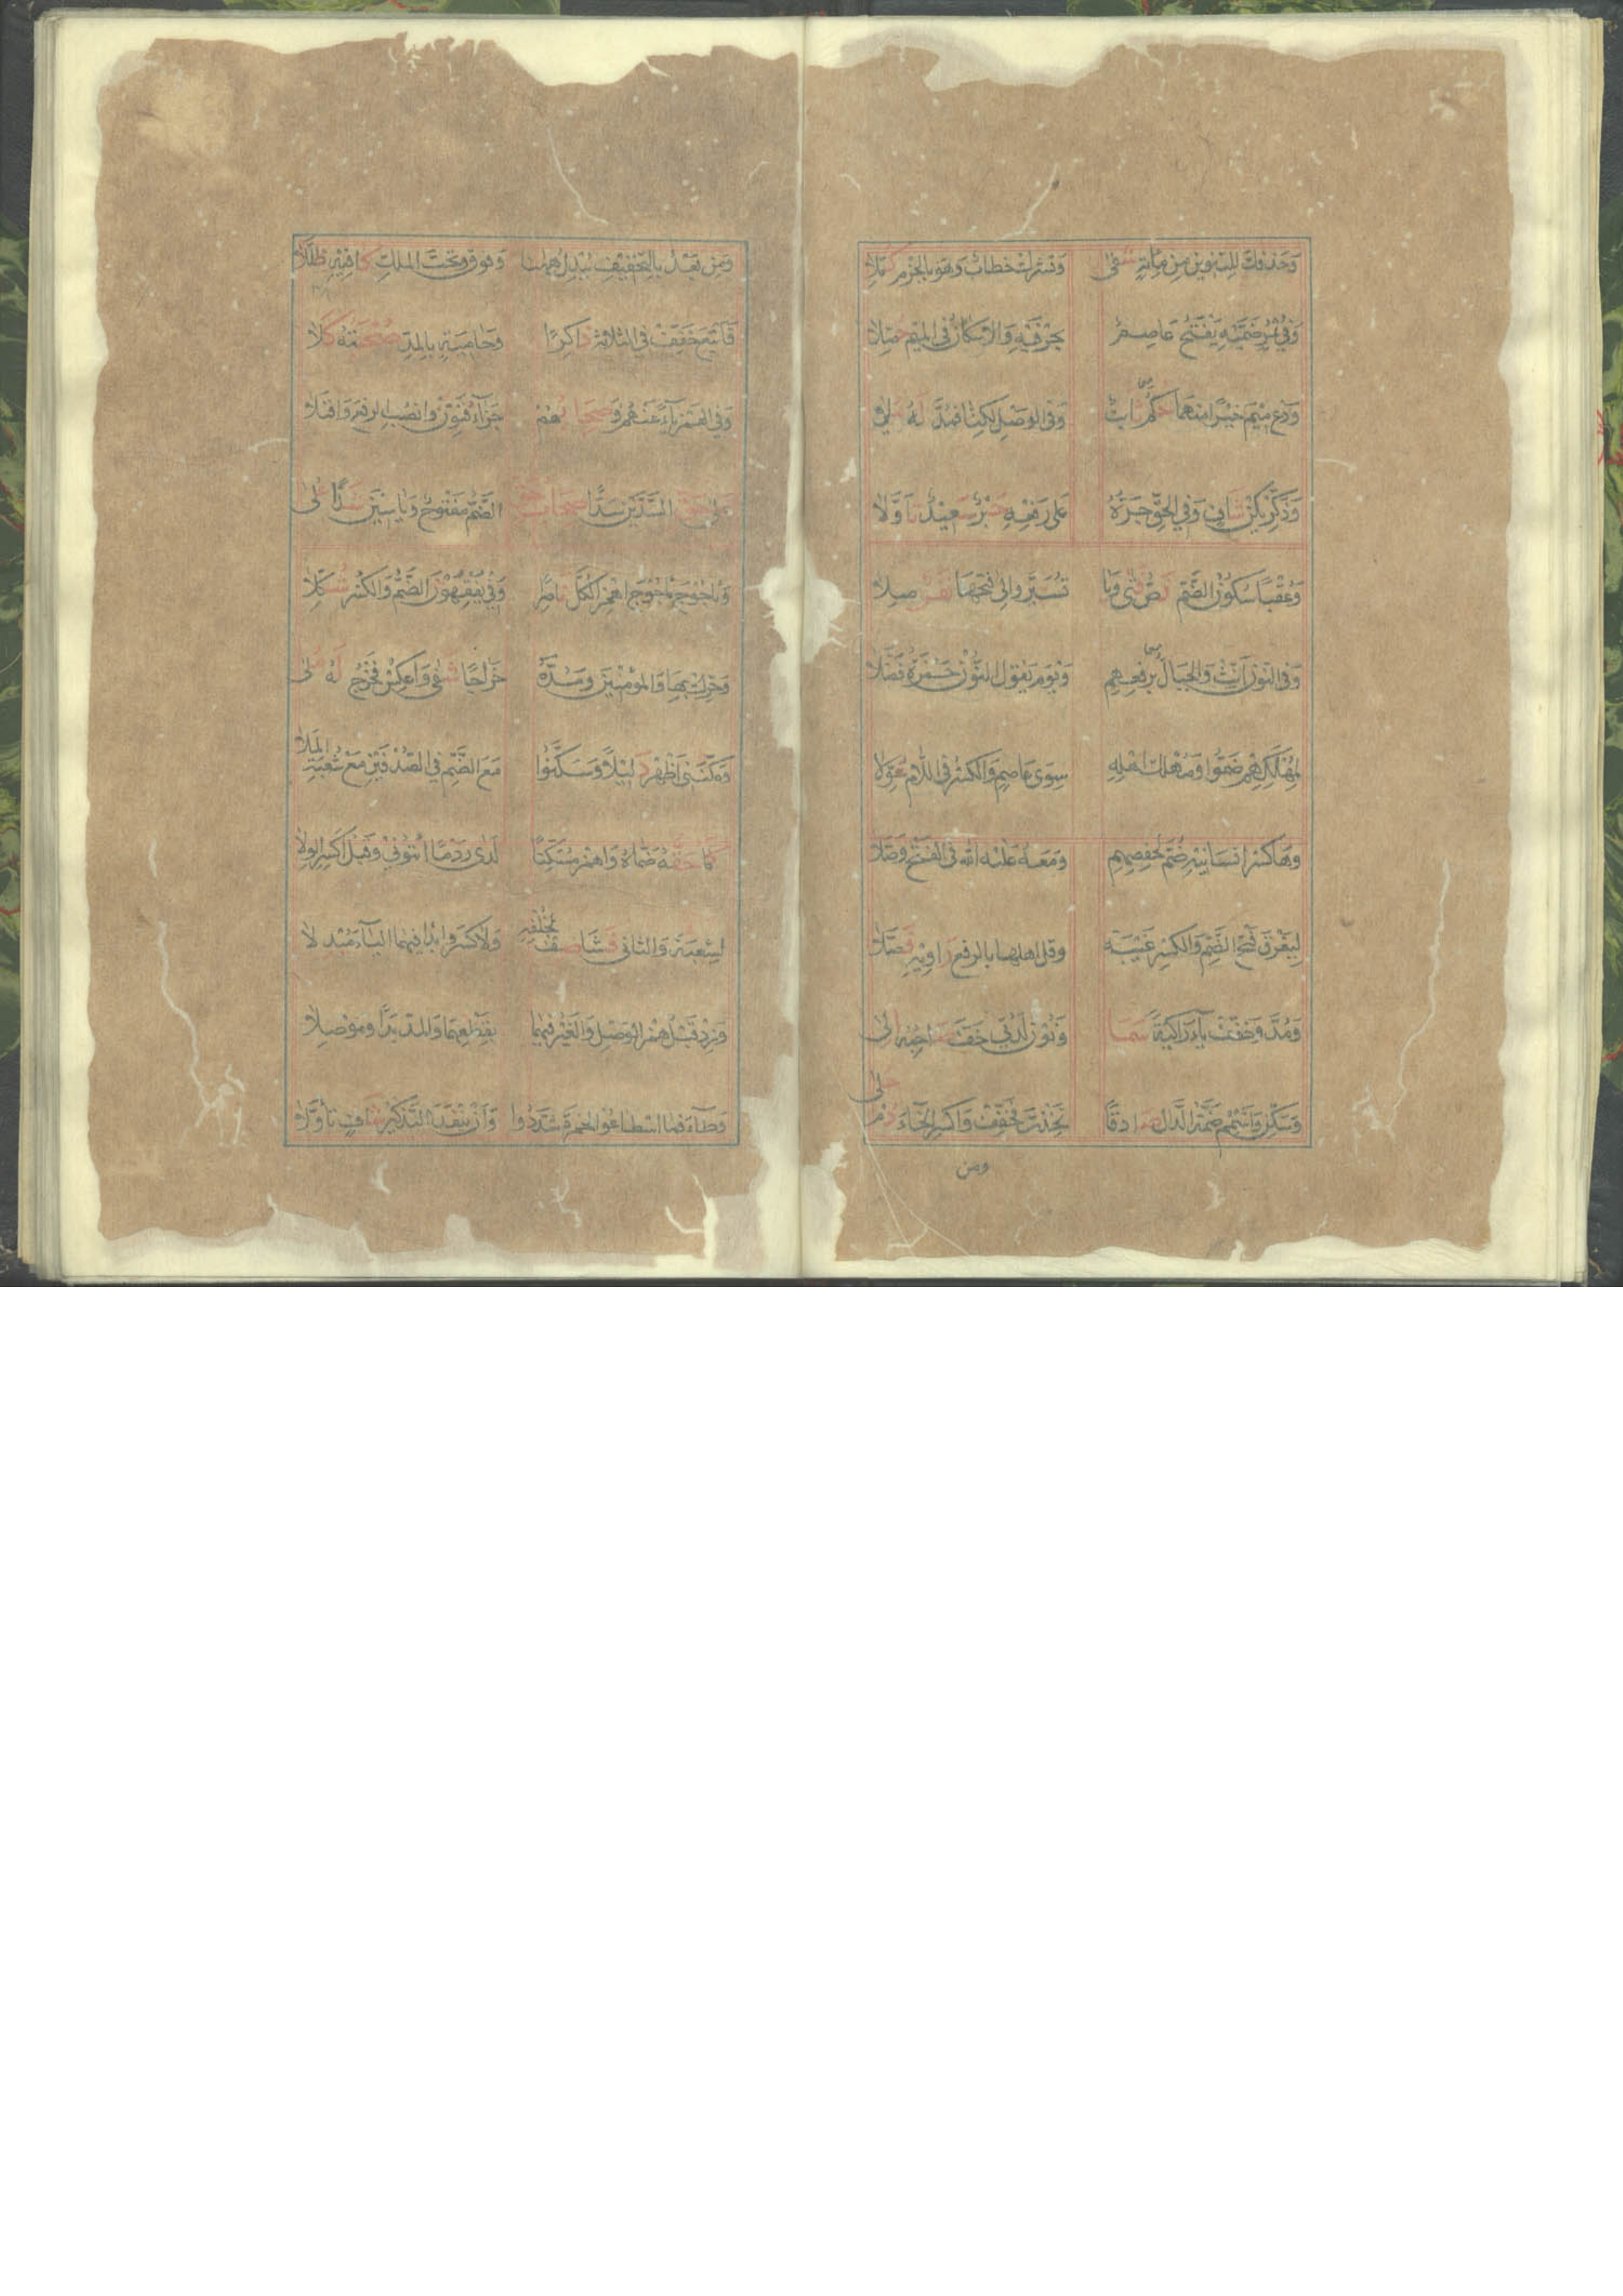 وَحَذْفُكَ لِلتَّنْوِينِ مِنْ مِائَةٍ شَفَى وَتُشْرِكْ خِطَابٌ وَهُوَ بِالْجَزْمِ كُمِّلَا
وَفِي ثُمُرٍ ضَمَّيْهِ يَفْتَحُ عَاصِمٌ بِحَرْفَيْهِ وَالْإِسْكَانُ فِي الْمِيمِ حُصِّلَا
وَدَعْ مِيمَ خَيْرًا مِنْهُمَا حُكْمُ ثَابِتٍ وَفِي الْوَصْلِ لَكِنَّا فَمُدَّ لَهُ مُلَا
وَذَكِّرْ يَكُنْ شَافٍ وَفِي الْحَقِّ جَرُّهُ عَلَى رَفْعِهِ حَبْرٌ سَعِيدٌ تَأَوَّلَا
وَعُقْبًا سُكُونُ الضَّمِّ نَصُّ فَتًى وَيَا نُسَيِّرُ وَالَى فَتْحَهَا نَفَرٌ مِلَا
وَفِي النُّونِ أَنِّثْ وَالْجِبَالَ بِرَفْعِهِمْ وَيَوْمَ يَقُولُ النُّونُ حَمْزَةُ فَضَّلَا
لِمُهْلَكِهِمْ ضَمُّوا وَمُهْلَكَ أَهْلِهِ سِوَى عَاصِمٍ وَالْكَسْرُ فِي اللَّامِ عُوِّلَا
وَهَا كَسْرِ أَنْسَانِيهِ ضُمَّ لِحَفْصِهِمْ وَمَعْهُ عَلَيْهِ اللهَ فِي الْفَتْحِ وَصَّلَا
لِيَغْرَقَ فَتْحُ الضَّمِّ وَالْكَسْرِ غَيْبَةً وَقُلْ أَهْلَهَا بِالرَّفْعِ رَاوِيهِ فَصَّلَا
وَمُدَّ وَخَفِّفْ يَاءَ زَاكِيَةً سَمَا وَنُونَ لَدُنِّي خَفَّ صَاحِبُهُ إِلَى
وَسَكِّنْ وَأَشْمِمْ ضَمَّةَ الدَّالِ صَادِقًا تَخِذْتَ فَخَفِّفْ وَاكْسِرِ الْخَاءَ دُمْ حُلَى
ومن
وَمِنْ بَعْدُ بِالتَّخْفِيفِ يُبْدِلَ هَاهُنَا وَفَوْقَ وَتَحْتَ الْمُلْكِ كَافِيهِ ظَلَّلَا
فَأَتْبَعَ خَفِّفْ فِي الثَّلَاثَةِ ذَاكِرًا وَحَامِيَةٍ بِالْمَدِّ صُحْبَتُهُ كَلَا
وَفِي الْهَمْزِ يَاءٌ عَنْهُمُ وَصِحَابُهُمْ جَزَاءُ فَنَوِّنْ وَانْصِبِ الرَّفْعَ وَاقْبَلَا
عَلَى حَقٍّ السَّدَّيْنِ سُدًّا صِحَابُ حَقٍّ الضَّمُّ مَفْتُوحٌ وَيَاسِينَ شِدْ عُلَى
وَيَأْجُوجَ مَأْجُوجَ اهْمِزِ الْكُلَّ نَاصِرًا وَفِي يُفْقِهُونَ الضَّمُّ وَالْكَسْرُ شُكِّلَا
وَحَرِّكْ بِهَا وَالْمُؤْمِنِينَ وَمُدَّهُ خَرَاجًا شَفَى وَاعْكِسْ فَخَرْجُ لَهُ مُلَى
وَمَكَّنَنِي أَظْهِرْ دَلِيلًا وَسَكَّنُوا مَعَ الضَّمِّ فِي الصُّدْفَيْنِ عَنْ شُعْبَةَ الْمَلَا
كَمَا حَقُّهُ ضَمَّاهُ وَاهْمِزْ مُسَكِّنًا لَدَى رَدْمًا ائْتُونِي وَقَبْلُ اكْسِرِ الْوِلَا
لِشُعْبَةَ وَالثَّانِي فَشَا صِفْ بِخُلْفِهِ وَلَا كَسْرَ وَابْدَأْ فِيهِمَا الْيَاءَ مُبْدِلَا
وَزِدْ قَبْلُ هَمْزَ الْوَصْلِ وَالْغَيْرُ فِيهِمَا بِقَطْعِهِمَا وَالْمَدِّ بَدْءًا وَمَوْصِلَا
وَطَاءَ فَمَا اسْطَاعُوا لِحَمْزَةَ شَدَّدُوا وَأَنْ يَنْفَدَ التَّذْكِيرُ شَافٍ تَأَوَّلَا